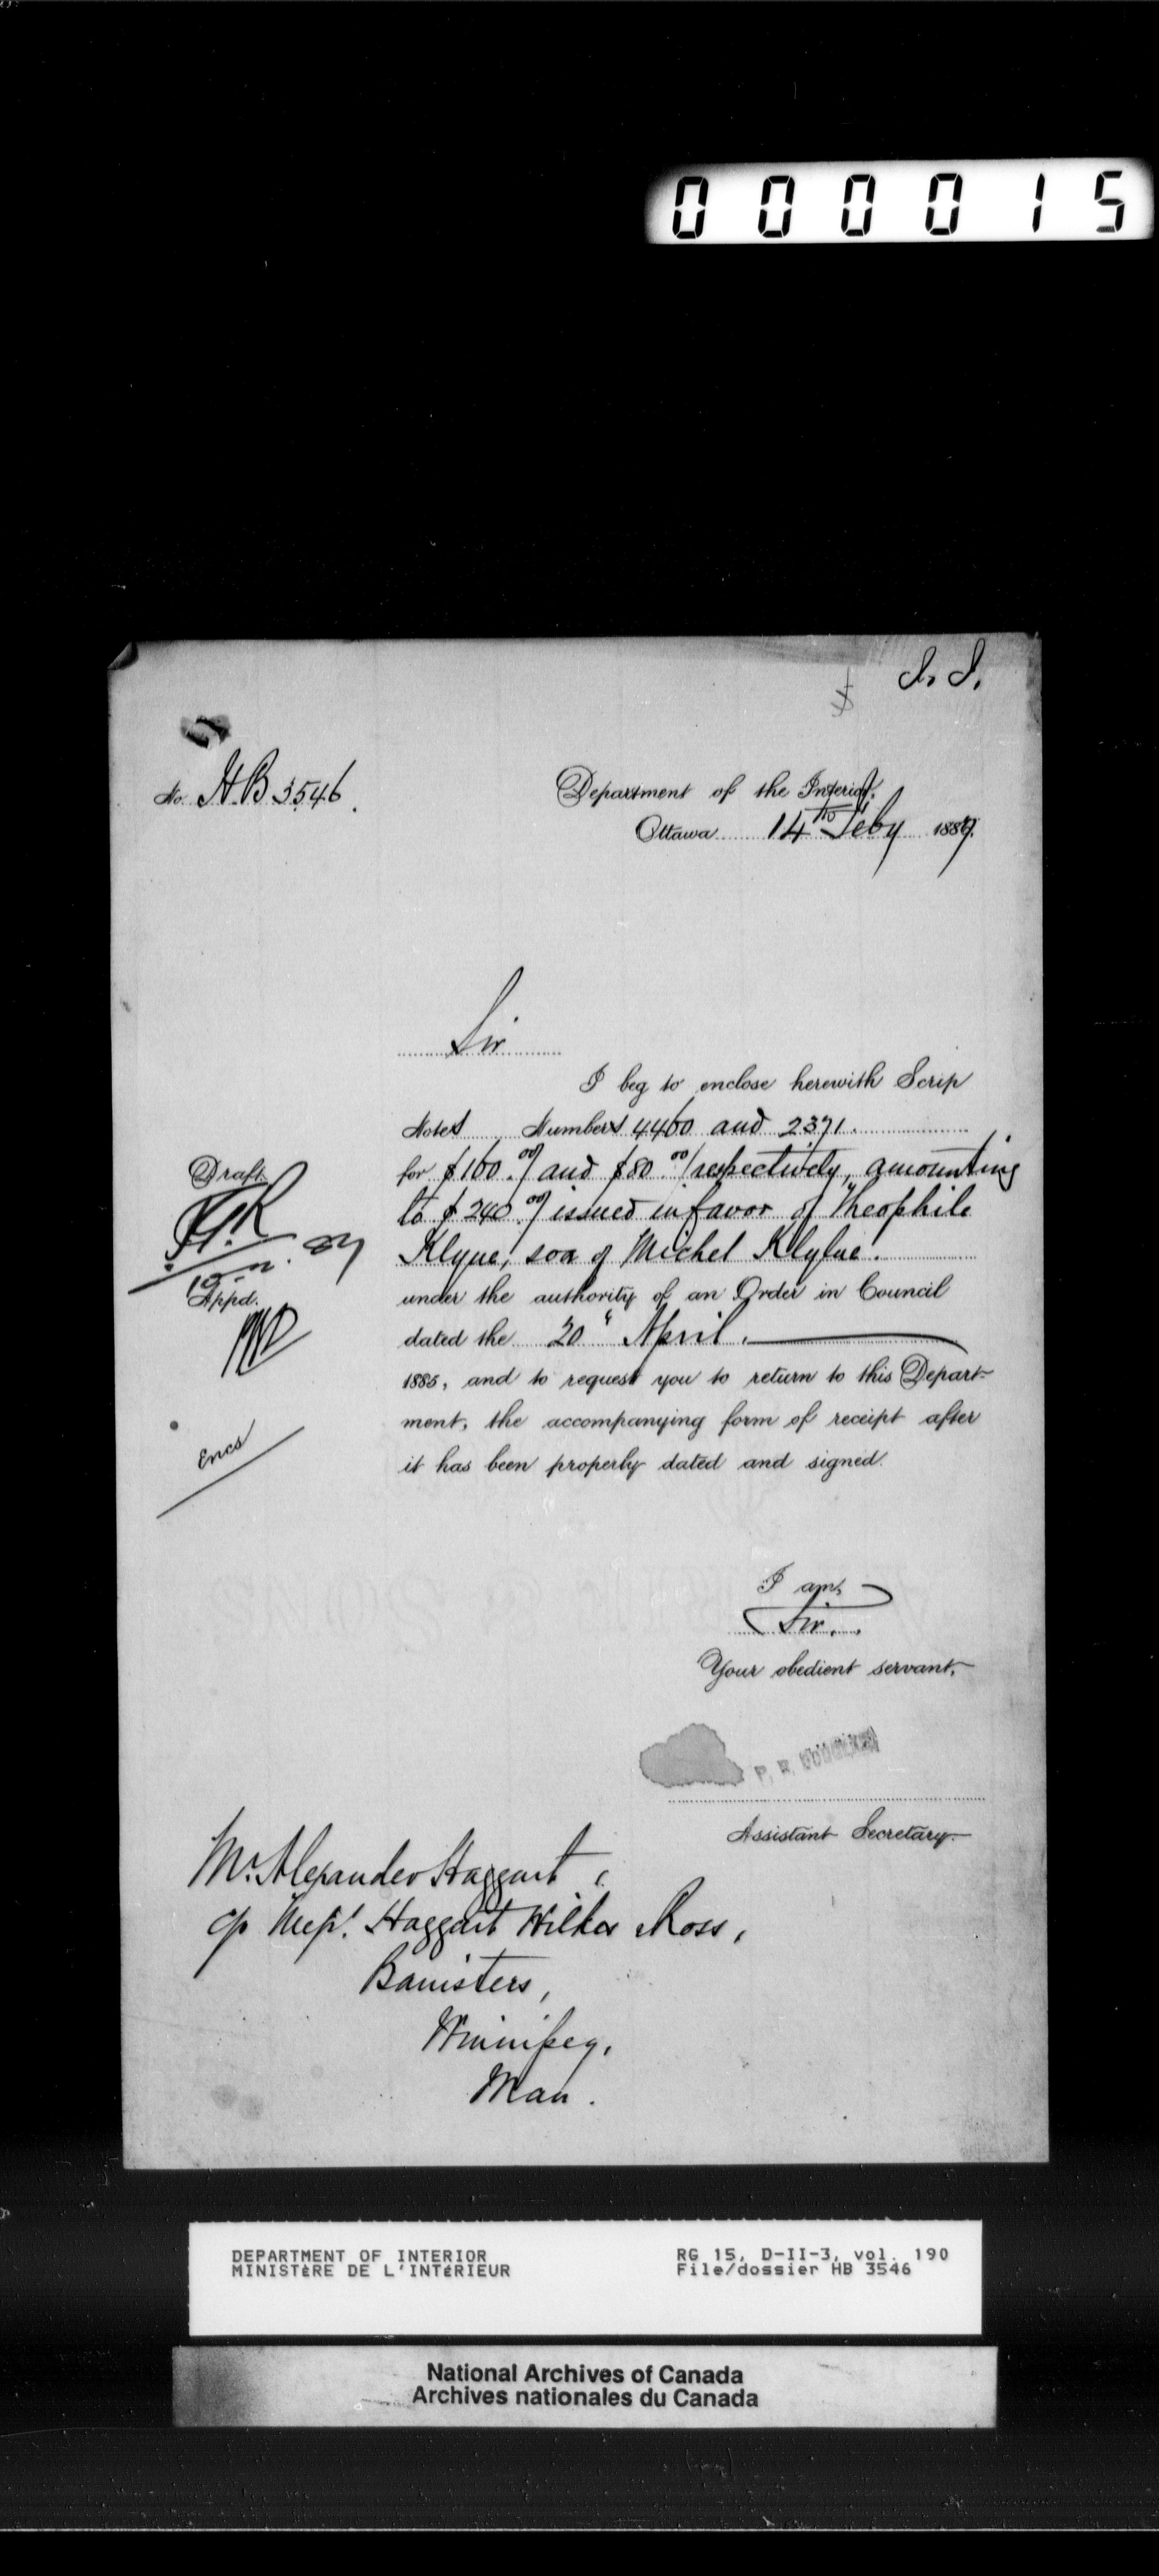 000015
No. H.B 3546.
Department of the Interior,
Ottawa 14th Feby 1887.
Sir
I beg to enclose herewith Scrip
Notes Numbers 4460 and 2371.
for $160.00/ and $80.00/ respectively, amounting
to $240.00/ issued in favor of Theophile
Klyne, son of Michel Klylne.
under the authority of an Order in Council
dated the 20" April.
1885, and to request you to return to this Depart-
ment, the accompanying form of receipt after
it has been properly dated and signed.
Draft
Appd.
Encs
I am,
Sir.
Your obedient servant,
P. B.
Assistant Secretary.
Mr. Alexander Haggart,
c/o Messrs. Haggart Wilkes Ross,
Barristers,
Winnipeg,
Man.
DEPARTMENT OF INTERIOR
MINISTèRE DE L'INTéRIEUR
RG 15, D-II-3, vol. 190
File/dossier HB 3546
National Archives of Canada
Archives nationales du Canada